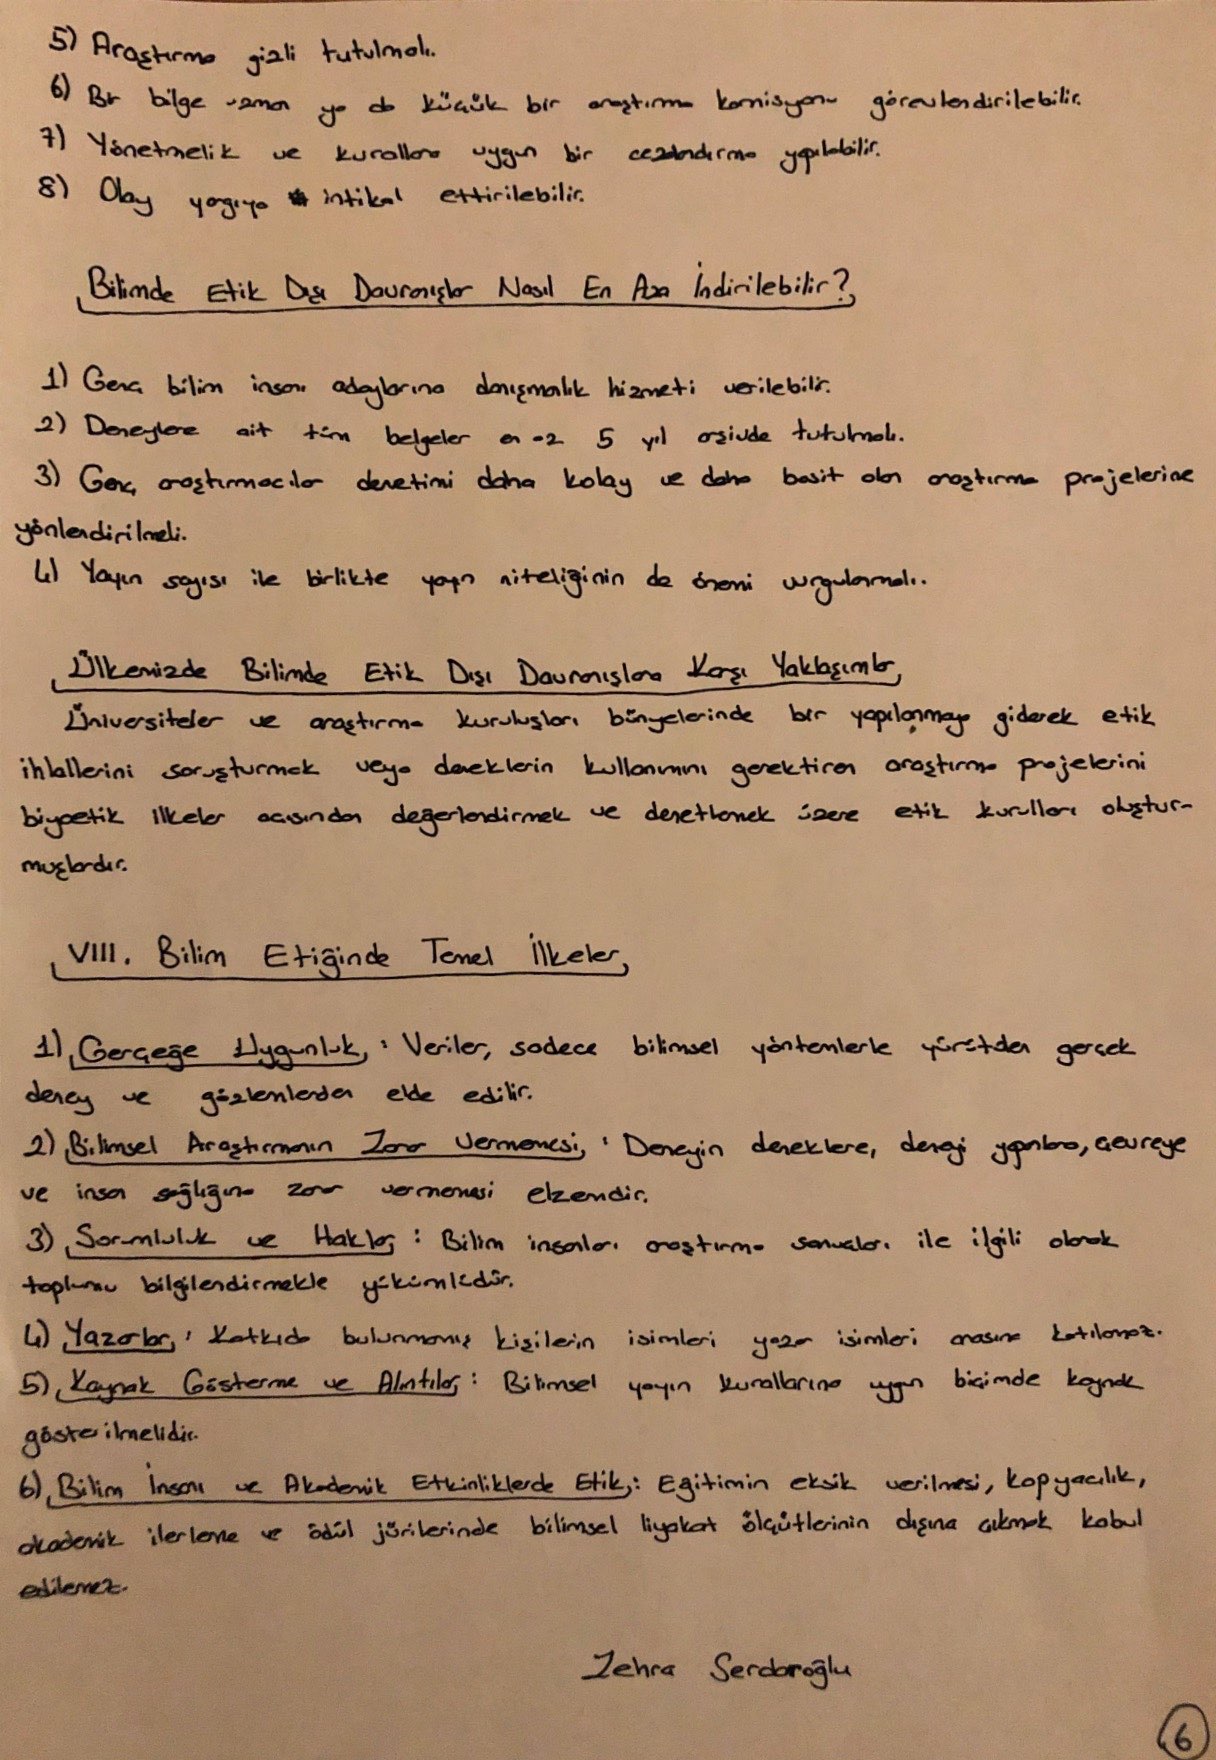 5) Araştırma gizli tutulmalı.
6) Bir bilge uzman ya da küçük bir araştırma komisyonu görevlendirilebilir.
7) Yönetmelik ve kurallara uygun bir cezalandırma yapılabilir.
8) Olay yargıya intikal ettirilebilir.
Bilimde Etik Dışı Davranışlar Nasıl En Aza İndirilebilir?
1) Genç bilim insanı adaylarına danışmalık hizmeti verilebilir.
2) Deneylere ait tüm belgeler en az 5 yıl arşivde tutulmalı.
3) Genç araştırmacılar denetimi daha kolay ve daha basit olan araştırma projelerine
yönlendirilmeli.
4) Yayın sayısı ile birlikte yayın niteliğinin de önemi vurgulanmalı.
Ülkemizde Bilimde Etik Dışı Davranışlara Karşı Yaklaşımlar
Üniversiteler ve araştırma kuruluşları bünyelerinde bir yapılanmaya giderek etik
ihlallerini soruşturmak veya deneklerin kullanımını gerektiren araştırma projelerini
biyoetik ilkeler açısından değerlendirmek ve denetlemek üzere etik kurulları oluştur-
muşlardır.
VIII. Bilim Etiğinde Temel İlkeler
1) Gerçeğe Uygunluk : Veriler, sadece bilimsel yöntemlerle yürütülen gerçek
deney ve gözlemlerden elde edilir.
2) Bilimsel Araştırmanın Zarar Vermemesi : Deneyin deneklere, deneyi yapanlara, çevreye
ve insan sağlığına zarar vermemesi elzemdir.
3) Sorumluluk ve Haklar : Bilim insanları araştırma sonuçları ile ilgili olarak
toplumu bilgilendirmekle yükümlüdür.
4) Yazarlar : Katkıda bulunmamış kişilerin isimleri yazar isimleri arasına katılamaz.
5) Kaynak Gösterme ve Alıntılar : Bilimsel yayın kurallarına uygun biçimde kaynak
gösterilmelidir.
6) Bilim İnsanı ve Akademik Etkinliklerde Etik : Eğitimin eksik verilmesi, kopyacılık,
akademik ilerleme ve ödül jürilerinde bilimsel liyakat ölçütlerinin dışına çıkmak kabul
edilemez.
Zehra Serdaroğlu
6